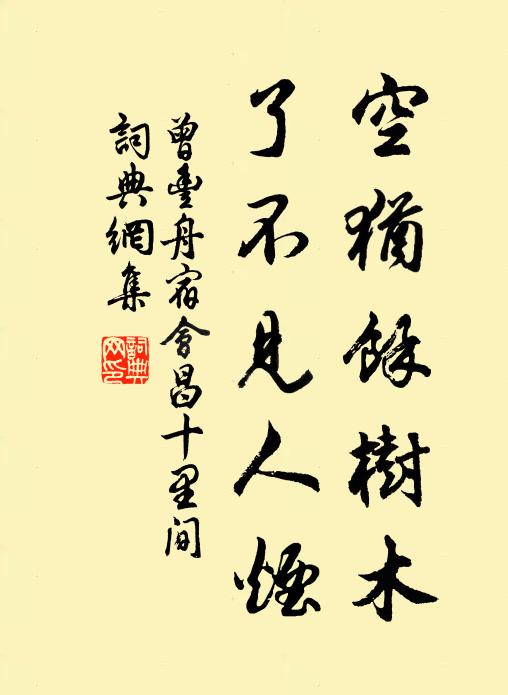 空猶餘樹木
了不見人煙
曾豐舟宿會昌十里间
詞典網集
詞典
网印